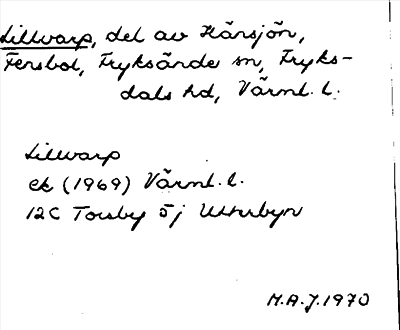 Lillvarp, del av Kärsjön,
Fensbol, Fryksände sn, Fryks-
dals hd, Värml. l.
Lillvarp
ek (1969) Värml. l.
12C Torsby 5j Utterbyn
M.A.J. 1970